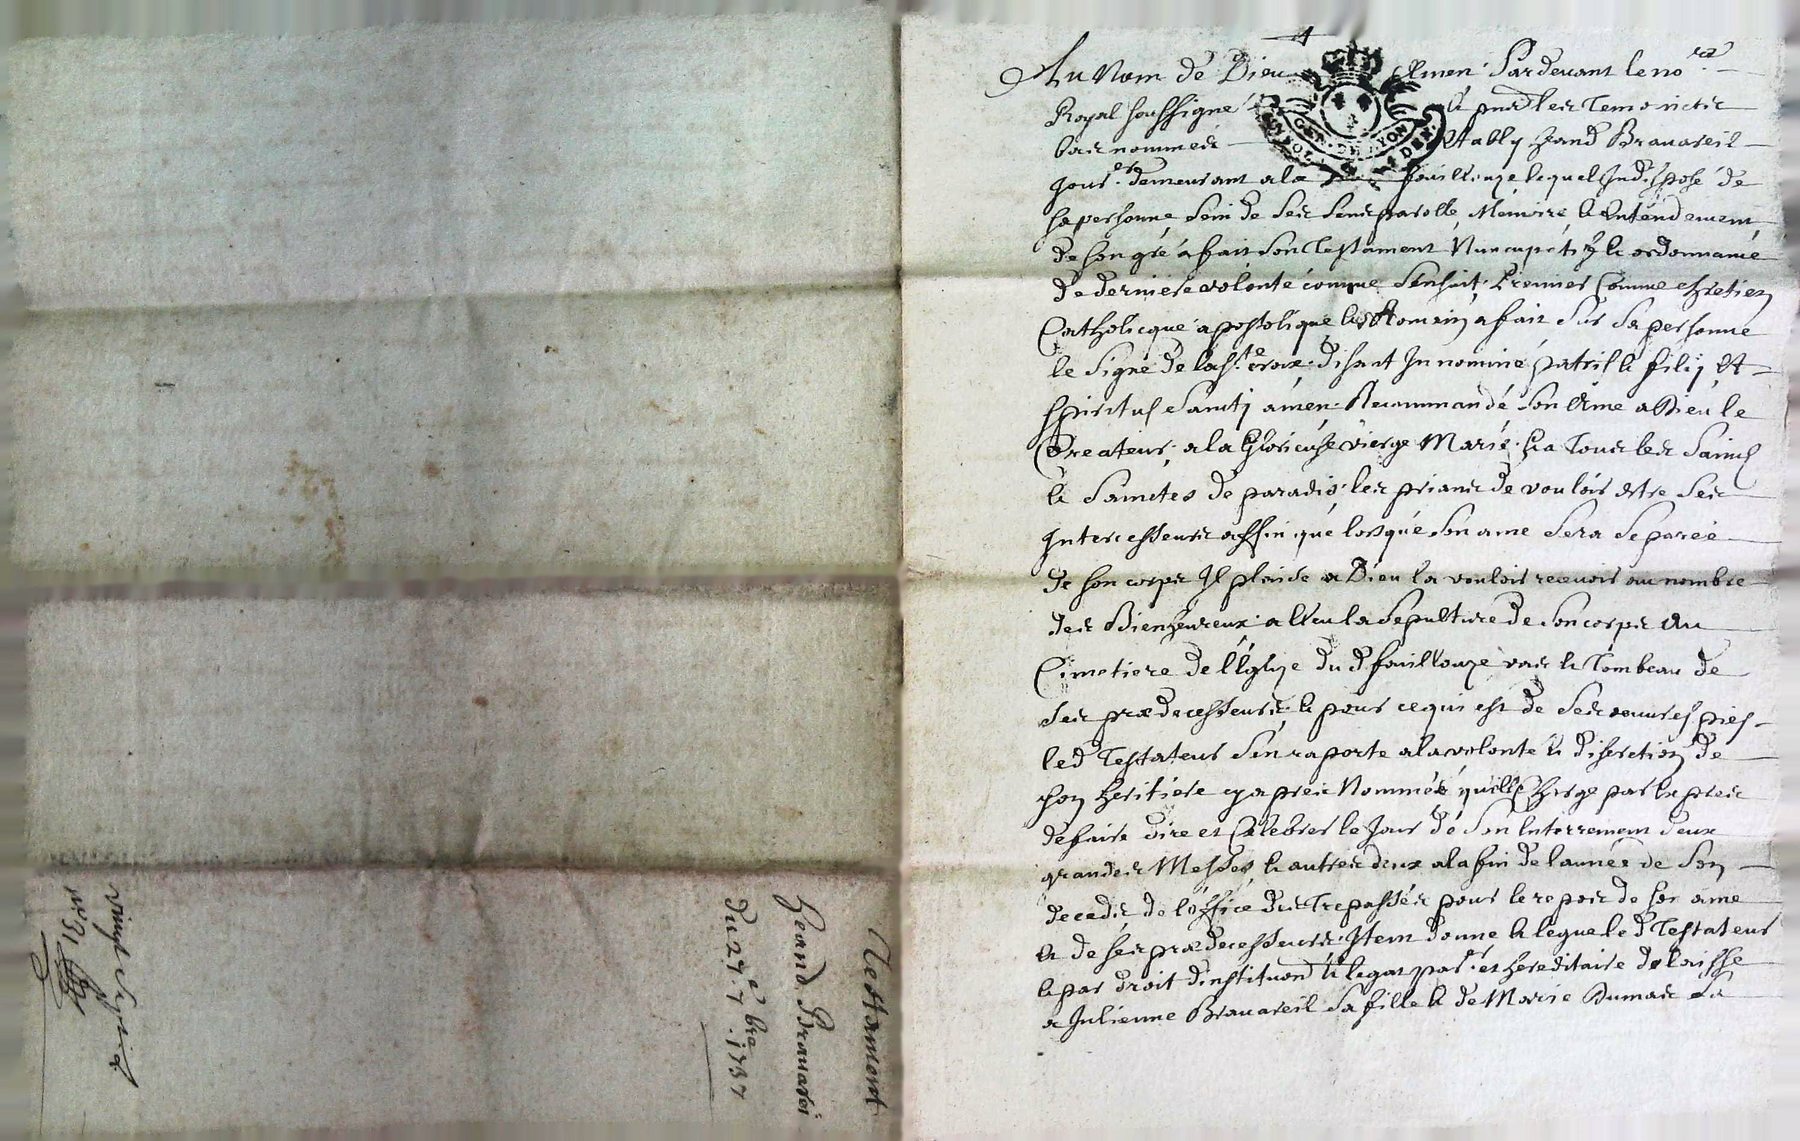 Testament
Jeand Brauarei
du 27e 7bre 1737
vingt
n° 31
Au Nom de Dieu Amen Pardeuant le no.re
Royal soussigné & presens les Temoincts
bas nommés Estably Jeand Brauareil
Jour.er demeurant a la fouillouze lequel Indisposé de
sa personne sein de ses sens parolle Memoire & Entendement
de son gré a fait son Testament Nuncupatif & ordonnance
de derniere volonté comme sensuit. Premier Comme chretien
Catholicque apostolique & Romain a fait sur sa personne
le signe de la Ste croix disant In nomine patris & filij Et
spiritus Sancti amen Recommandé son Ame a Dieu le
Createur, a la Glorieuse vierge Marie & a Tous les Saincts
& Sainctes de paradis les priant de vouloir estre ses
Intercesseurs affin que lorsque son ame sera separée
de son corps Il plaise a Dieu la vouloir receuoir au nombre
des Bienheureux a Esleu la Sepulture de son corps Au
Cimetiere de l'Eglize du d. fouillouze & Tombeau de
ses prædecesseurs & pour ce qui est de ses œuures pies
led Testateur sen raporte a la volonté & discretion de
son heritiere cy apres Nommée quille Charge par Expres
de faire dire et Celebrer le Jour de son Enterrement deux
grandes Messes & autres deux a la fin de l'année de son
decedz de l'office des Trepassés pour le repos de son ame
& de ses prædecesseurs. Item donne & legue led Testateur
& par droit d'instituon & legat par.er et hereditaire delaisse
a Julienne Brauareil sa fille & de Marie Dumas sa